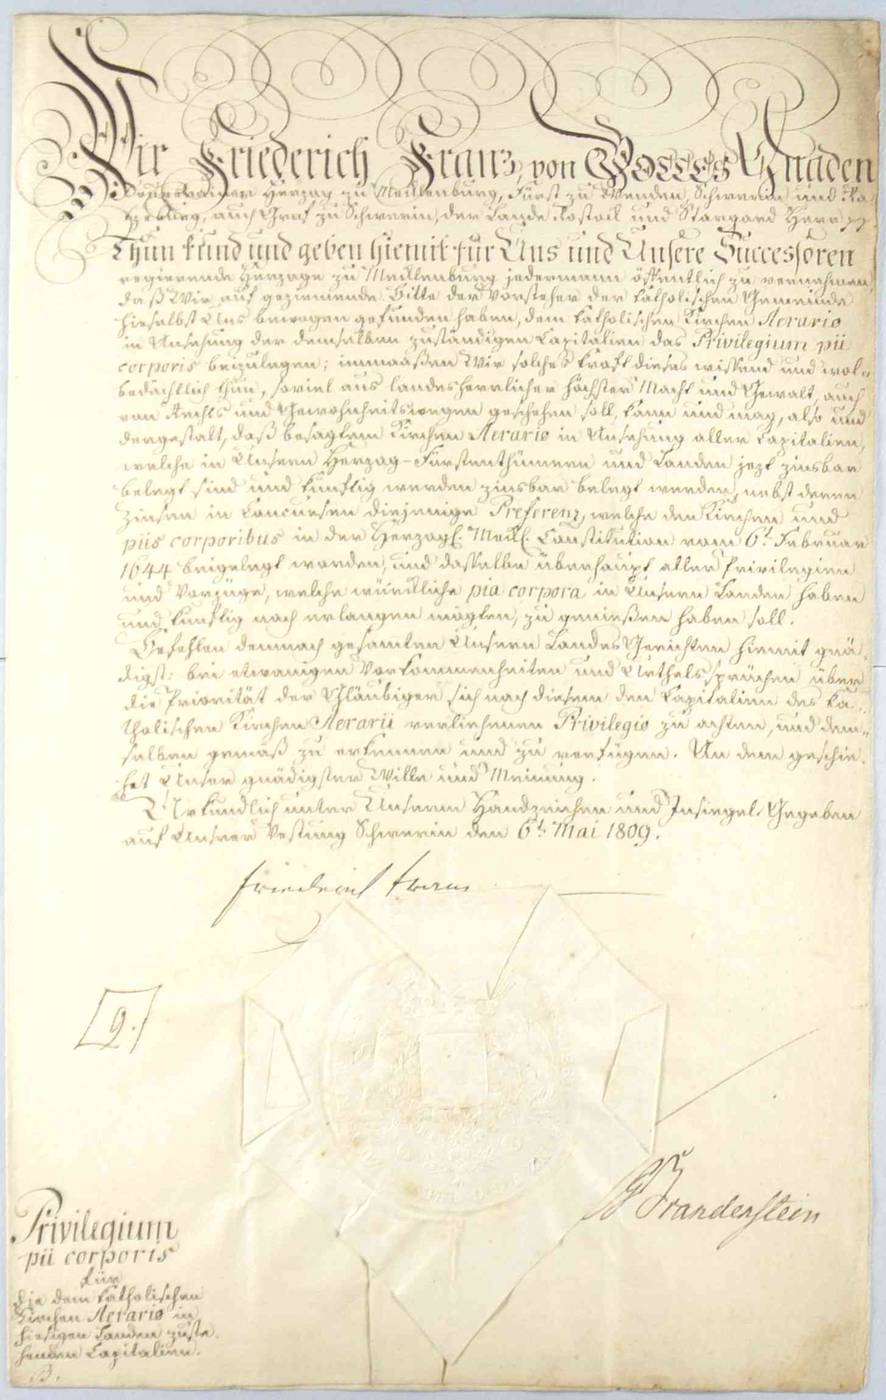 Wir Friederich Franz, von Gottes Gnaden
Souverainer Herzog zu Mecklenburg, Fürst zu Wenden, Schwerin und Ra-
tzeburg, auch Graf zu Schwerin, der Lande Rostock und Stargard Herr
Thun kund und geben hiemit für Uns und Unsere Successoren
regierende Herzoge zu Mecklenburg jedermann öffentlich zu vernehmen,
daß Wir auf geziemende Bitte der Vorsteher der katholischen Gemeinde
hieselbst Uns bewogen gefunden haben, dem katholischen Kirchen Aerario
in Ansehung der demselben zuständigen Capitalien das Privilegium pii
corporis beizulegen; immaaßen Wir solches kraft dieses wissend und wol-
bedächtlich thun, soviel aus landesherrlicher höchster Macht und Gewalt, auch
von Rechts und Gewohnheitswegen geschehen soll, kann und mag, also und
dergestalt, daß besagtem Kirchen Aerario in Ansehung aller Capitalien,
welche in Unsern Herzog-Fürstenthümern und Landen jezt zinsbar
belegt sind und künftig werden zinsbar belegt werden, nebst deren
Zinsen in Concursen diejenige Preferenz, welche den Kirchen und
piis corporibus in der Herzogl. Meckl. Constitution vom 6t. Februar
1644 beigelegt worden, und dasselbe überhaupt aller Privilegien
und Vorzüge, welche würkliche pia corpora in Unsern Landen haben
und künftig noch erlangen mögten, zu genießen haben soll.
Befehlen demnach gesamten Unsern Landes Gerichten hiemit gnä-
digst: bei etwanigen Vorkommenheiten und Urthelssprüchen über
die Priorität der Gläubiger sich nach diesem den Capitalien des ka-
tholischen Kirchen Aerarii verliehenen Privilegio zu achten, und dem-
selben gemäß zu erkennen und zu verfügen. An dem geschie-
het Unser gnädigster Wille und Meinung.
Urkundlich unter Unserm Handzeichen und Insiegel. Gegeben
auf Unsrer Vestung Schwerin den 6t. Mai 1809.
Friederich Franz
9.
Brandenstein
Privilegium
pii corporis
für
die dem katholischen
Kirchen Aerario in
hiesigen Landen zuste-
henden Capitalien.